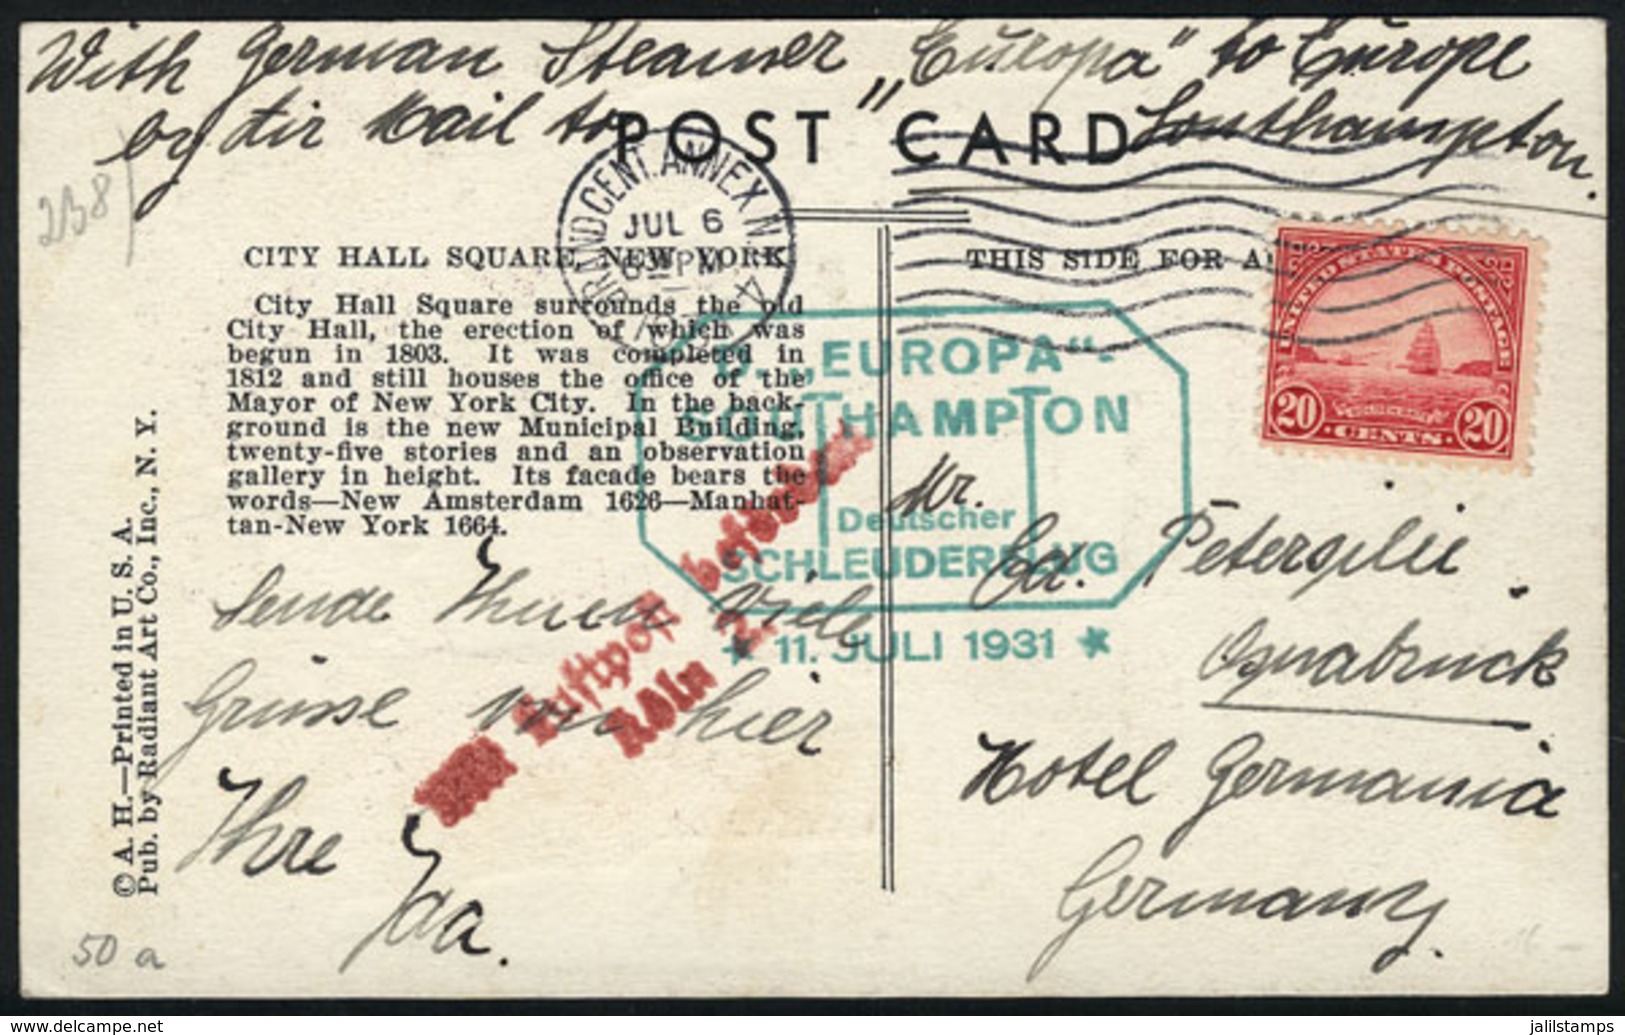 With German Steamer „Europa" to Europe
by Air Mail to Southampton.
POST CARD
238
GRAND CENT. ANNEX N.Y.
JUL 6
PM
4
CITY HALL SQUARE, NEW YORK
THIS SIDE FOR A
City Hall Square surrounds the old
City Hall, the erection of which was
begun in 1803. It was completed in
1812 and still houses the office of the
Mayor of New York City. In the back-
ground is the new Municipal Building,
twenty-five stories and an observation
gallery in height. Its facade bears the
words—New Amsterdam 1626—Manhat-
tan-New York 1664.
UNITED STATES POSTAGE
20 CENTS 20
D. „EUROPA"-
SOUTHAMPTON
Deutscher
SCHLEUDERFLUG
* 11. JULI 1931 *
Luftpost befördert
Köln 2.
Sende Ihnen Viele
Grüsse von hier
Ihre
Mr.
Ed. Petersilie
Osnabruck
Hotel Germania
Germany.
© A. H.—Printed in U. S. A.
Pub. by Radiant Art Co., Inc., N. Y.
50 a
www.delcampe.net
jalilstamps